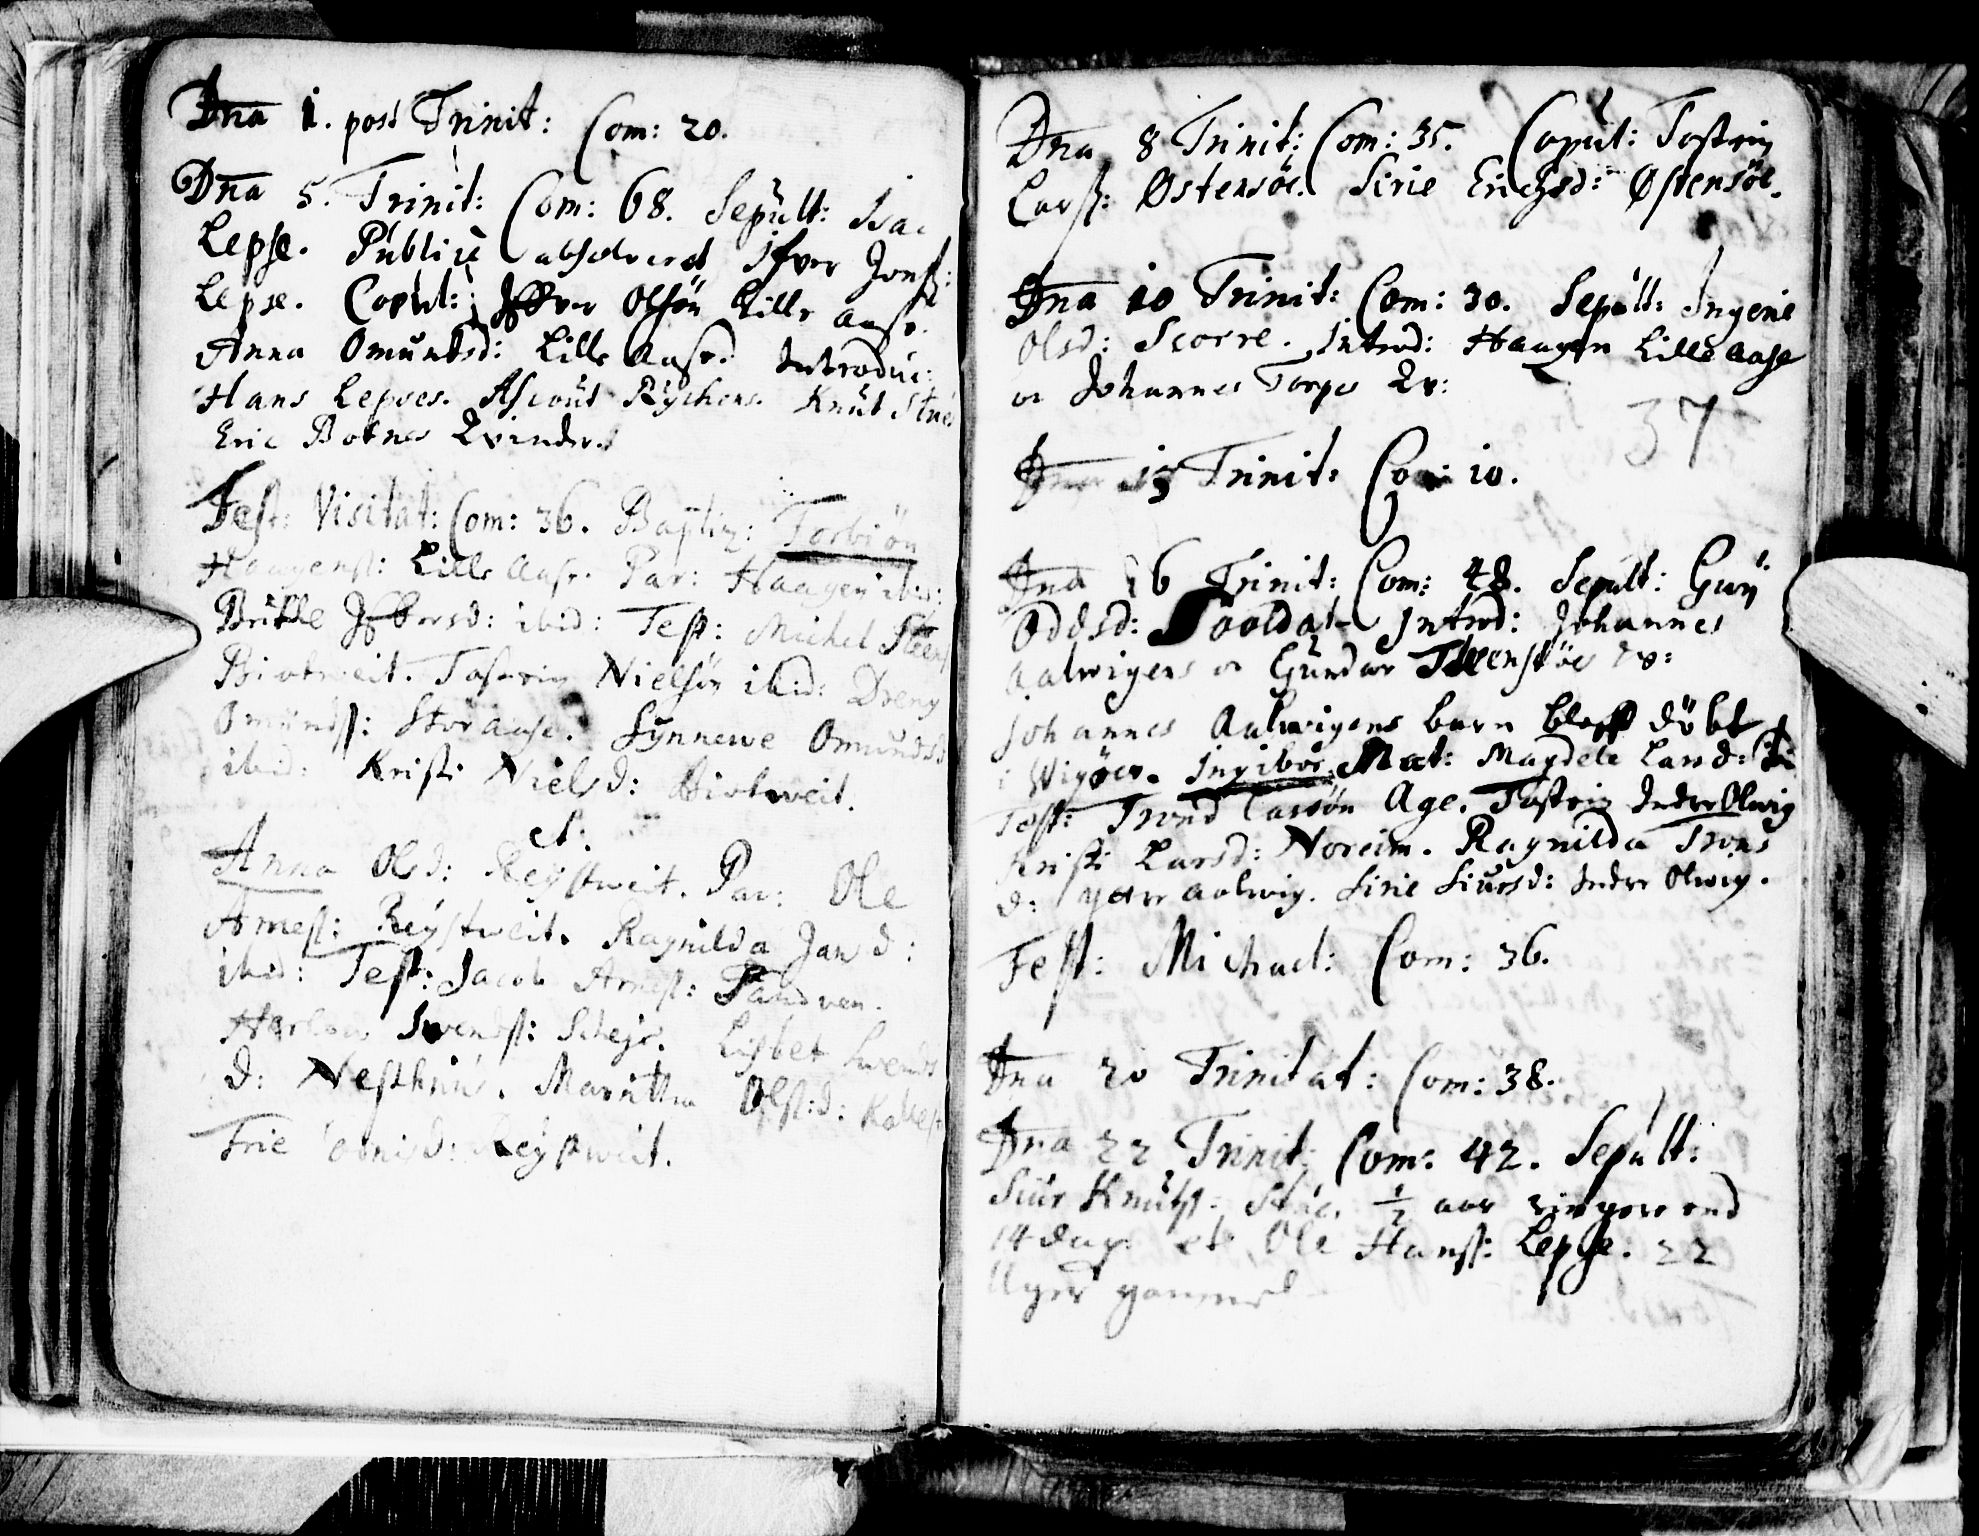 Dna 1. post Trinit: Com: 20.
Dna 5. Trinit: Com: 68. Sepult: Isac
Lepse. Publicè absolveret Ifver Jonss:
Lepse. Copul: Iffver Olsön Lille Aase.
Anna Omundsd: Lille Aase. Introduc:
Hans Lepses. Ascout Rychens. Knut Stues
Eric Botnes Qvinder.
Fest: Visitat: Com: 36. Baptiz: Torbiön
Haagens: Lille Aase. Par: Haagen ibid:
Britte Iffversd: ibid: Test: Michel Steens
Biotveit. Tosten Nielsön ibid: Dreng
Omunds: Stor aase. Synnewe Omundsd
ibid: Kristi Nielsd: Biotweit.
et:
Anna Olsd: Reystweit. Par: Ole
Arnes: Reystweit. Ragnilda Jansd:
ibid: Test: Jacob Arnes: Sandven.
Svends: Scheje. Lisbet Svends
d: Nesthuus. Maritta Olsd: Kaldest
Reystweit.
Dna 8 Trinit: Com: 35. Copul: Tosten
Larss: Østensöe. Sirie Erichsd: Østensöe.
Dna 10 Trinit: Com: 30. Sepult: Ingerie
Olsd: Scorre. Introd: Haagen Lille Aase
oc Johannes Torpes Qv:
37
Dna 13 Trinit: Com: 10.
Dna 16 Trinit: Com: 48. Sepult: Guri
Oddsd: Soldat Introd: Johannes
Aalwigens oc Gundar Steenstöes Qv:
Johannes Aalwigens barn bleff döbt
i Wigöer. Ingibor. Mat: Magdele Larsd: ibi
Test: Trond Larsön Age. Tosten Indre Olwig
Kristi Larsd: Noreim. Ragnilda Trons
d: Ytre Aalwig. Sirie Siursd: Indre Olwig.
Fest: Michael: Com: 36.
Dna 20 Trinitat: Com: 38.
Dna 22 Trinit: Com: 42. Sepult:
Siur Knuts: Stue. 1/2 aar ringere end
14 dage et Ole Hanss: Lepse. 22
Uger gammel